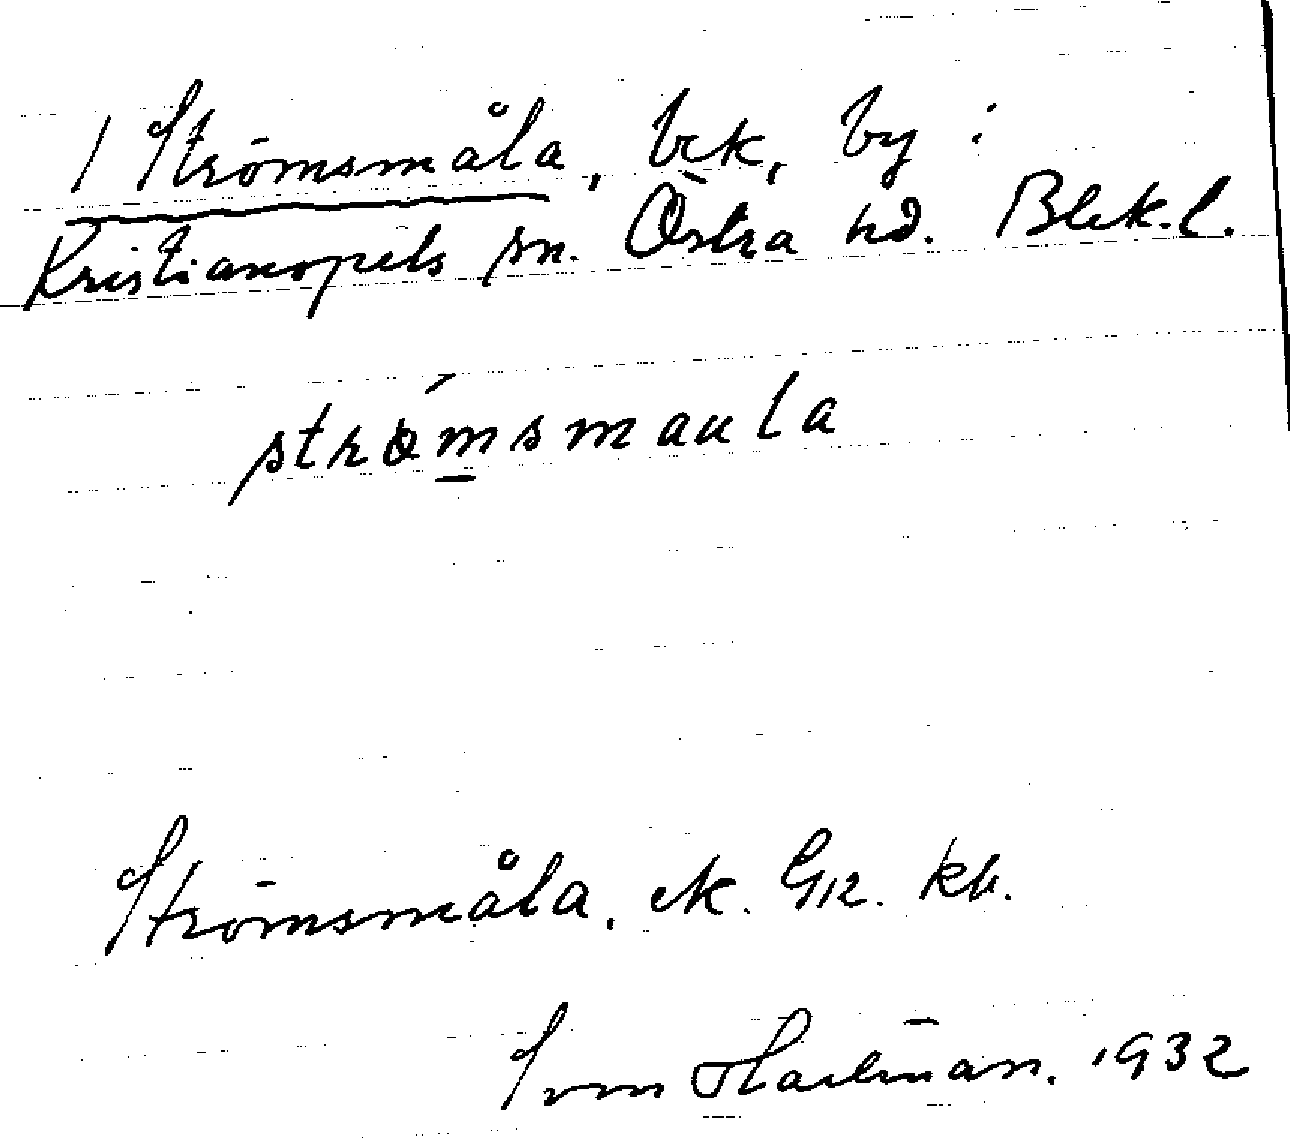 1 Strömsmåla, bek, by i
Kristianopels sn. Östra hd. Blek. l.
strömsmaula
Strömsmåla, ek. Gk. kb.
Sven Hallman. 1932